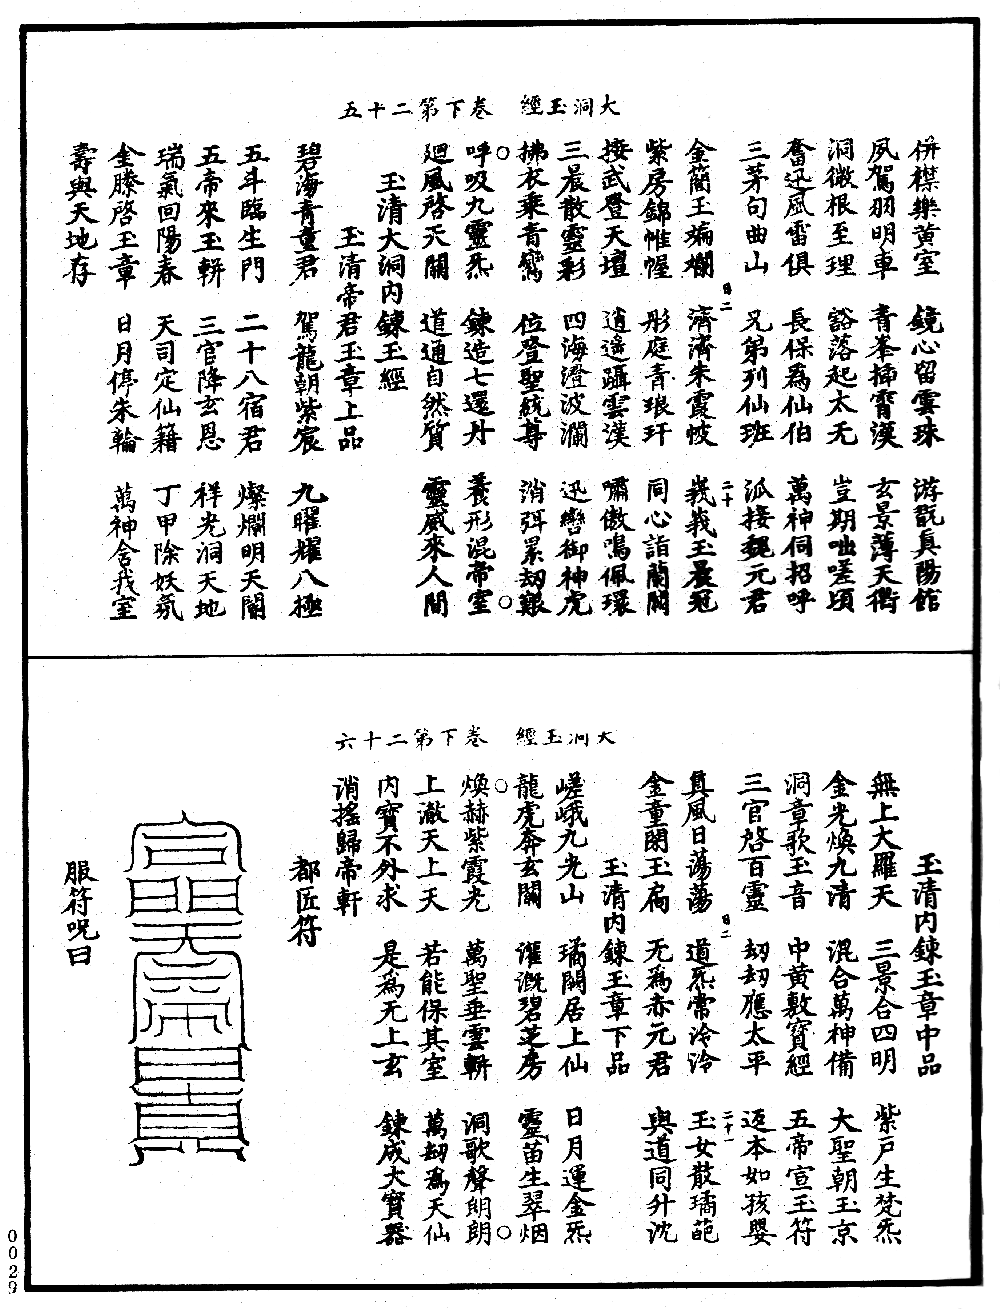 大洞玉經 卷下第二十五
併襟樂黃室 鏡心留雲珠 游翫真陽館
夙駕羽明車 青峯插霄漢 玄景薄天衢
洞微根至理 豁落起太无 豈期咄嗟頃
奮迅風雷俱 長保為仙伯 萬神伺招呼
三茅句曲山 兄弟列仙班 泒接魏元君
金簡玉編斕 濟濟朱霞帔 峩峩玉晨冠
日二 二十
紫房錦帷幄 彤庭青琅玕 同心詣蘭闕
接武登天壇 逍遥躡雲漢 嘯傲鳴佩環
三晨散靈彩 四海澄波瀾 迅轡御神虎
拂衣乘青鸞 位登聖統尊 消弭累劫艱
○呼吸九靈炁 鍊造七還丹 養形混帝室○
廻風啓天關 道通自然質 靈威來人間
玉清大洞內鍊玉經
玉清帝君玉章上品
碧海青童君 駕龍朝紫宸 九曜耀八極
五斗臨生門 二十八宿君 燦爛明天閽
五帝來玉輧 三官降玄恩 祥光洞天地
瑞氣回陽春 天司定仙籍 丁甲除妖氛
金縢啓玉章 日月停朱輪 萬神舍我室
壽與天地存
大洞玉經 卷下第二十六
玉清內鍊玉章中品
無上大羅天 三景合四明 紫戶生梵炁
金光煥九清 混合萬神備 大聖朝玉京
洞章歌玉音 中黃敷寶經 五帝宣玉符
三官啓百靈 劫劫應太平 返本如孩嬰
真風日蕩蕩 道炁常泠泠 玉女散璚葩
日二 二十一
金童閉玉扃 无為赤元君 與道同升沈
玉清內鍊玉章下品
嵯峨九光山 璚闕居上仙 日月運金炁
龍虎奔玄關 灌溉碧芝房 靈苗生翠烟
○煥赫紫霞光 萬聖垂雲輧 洞歌聲朗朗○
上澈天上天 若能保其室 萬劫為天仙
內寶不外求 是為无上玄 鍊成大寶器
消搖歸帝軒
都匠符
服符呪曰
0029